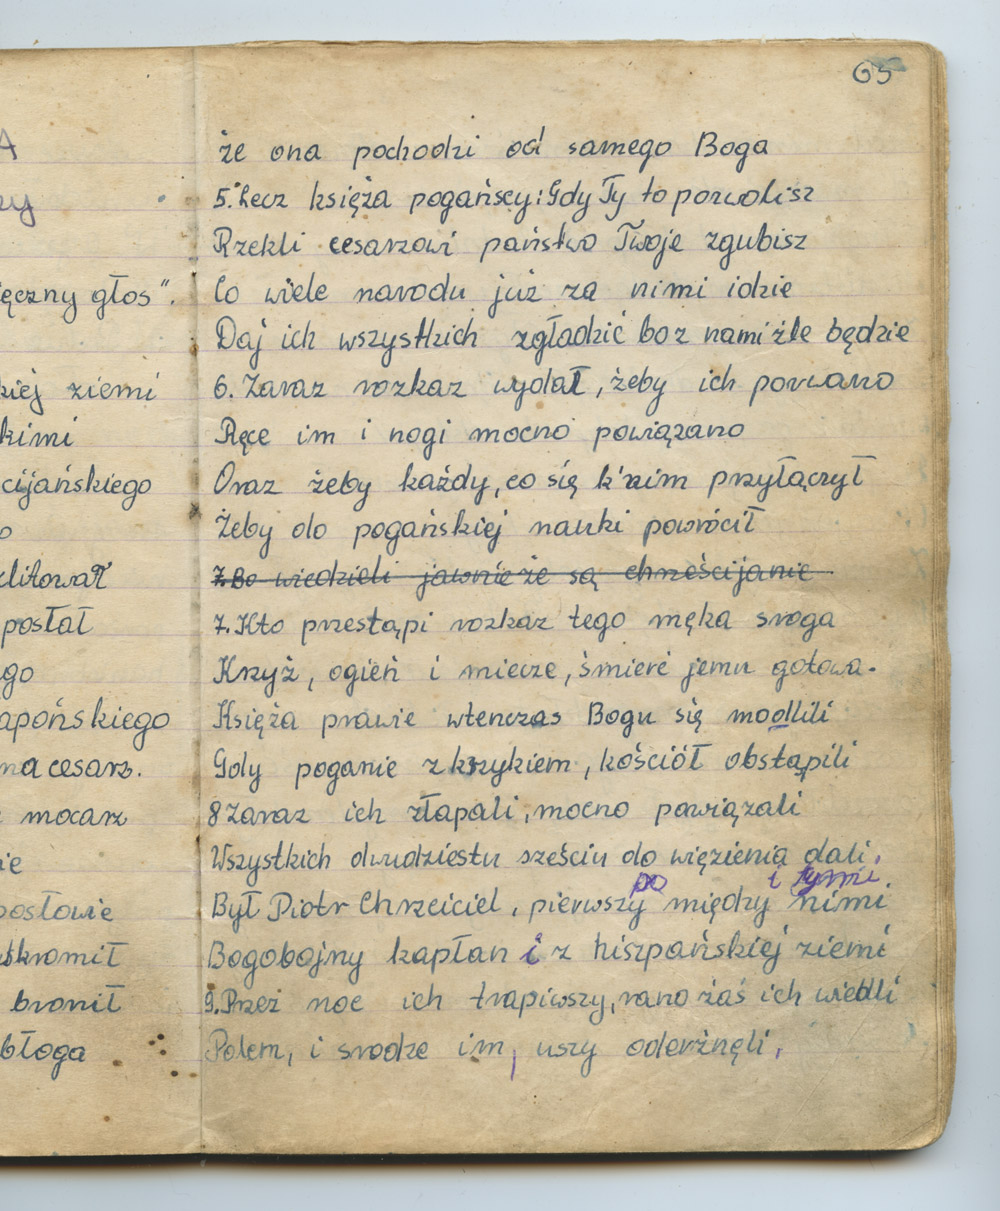 65
A
ny
ęczny głos".
kiej ziemi
kimi
cijańskiego
o
litował
posłał
go
apońskiego
na cesarz.
mocarz
ie
posłowie
skromił
bronił
błoga
że ona pochodzi od samego Boga
5. Lecz księża pogańscy: Gdy Ty to pozwolisz
Rzekli cesarzowi państwo Twoje zgubisz
Co wiele narodu już za nimi idzie
Daj ich wszystkich zgładzić bo z nami źle będzie
6. Zaraz rozkaz wydał, żeby ich porwano
Ręce im i nogi mocno powiązano
Oraz żeby każdy, co się k'nim przyłączył
Żeby do pogańskiej nauki powrócił
7. Bo wiedzieli jawnie że są chrześcijanie
7. Kto przestąpi rozkaz tego męka sroga
Krzyż, ogień i miecze, śmierć jemu gotowa.
Księża prawie wtenczas Bogu się modlili
Gdy poganie z krzykiem, kościół obstąpili
8 Zaraz ich złapali, mocno powiązali
Wszystkich dwudziestu sześciu do więzienia dali,
po i tymi
Był Piotr Chrzciciel, pierwszy między nimi
Bogobojny kapłan i z hiszpańskiej ziemi
9. Przez noc ich trapiwszy, rano zaś ich wiedli
Polem, i srodze im, uszy oderżnęli,